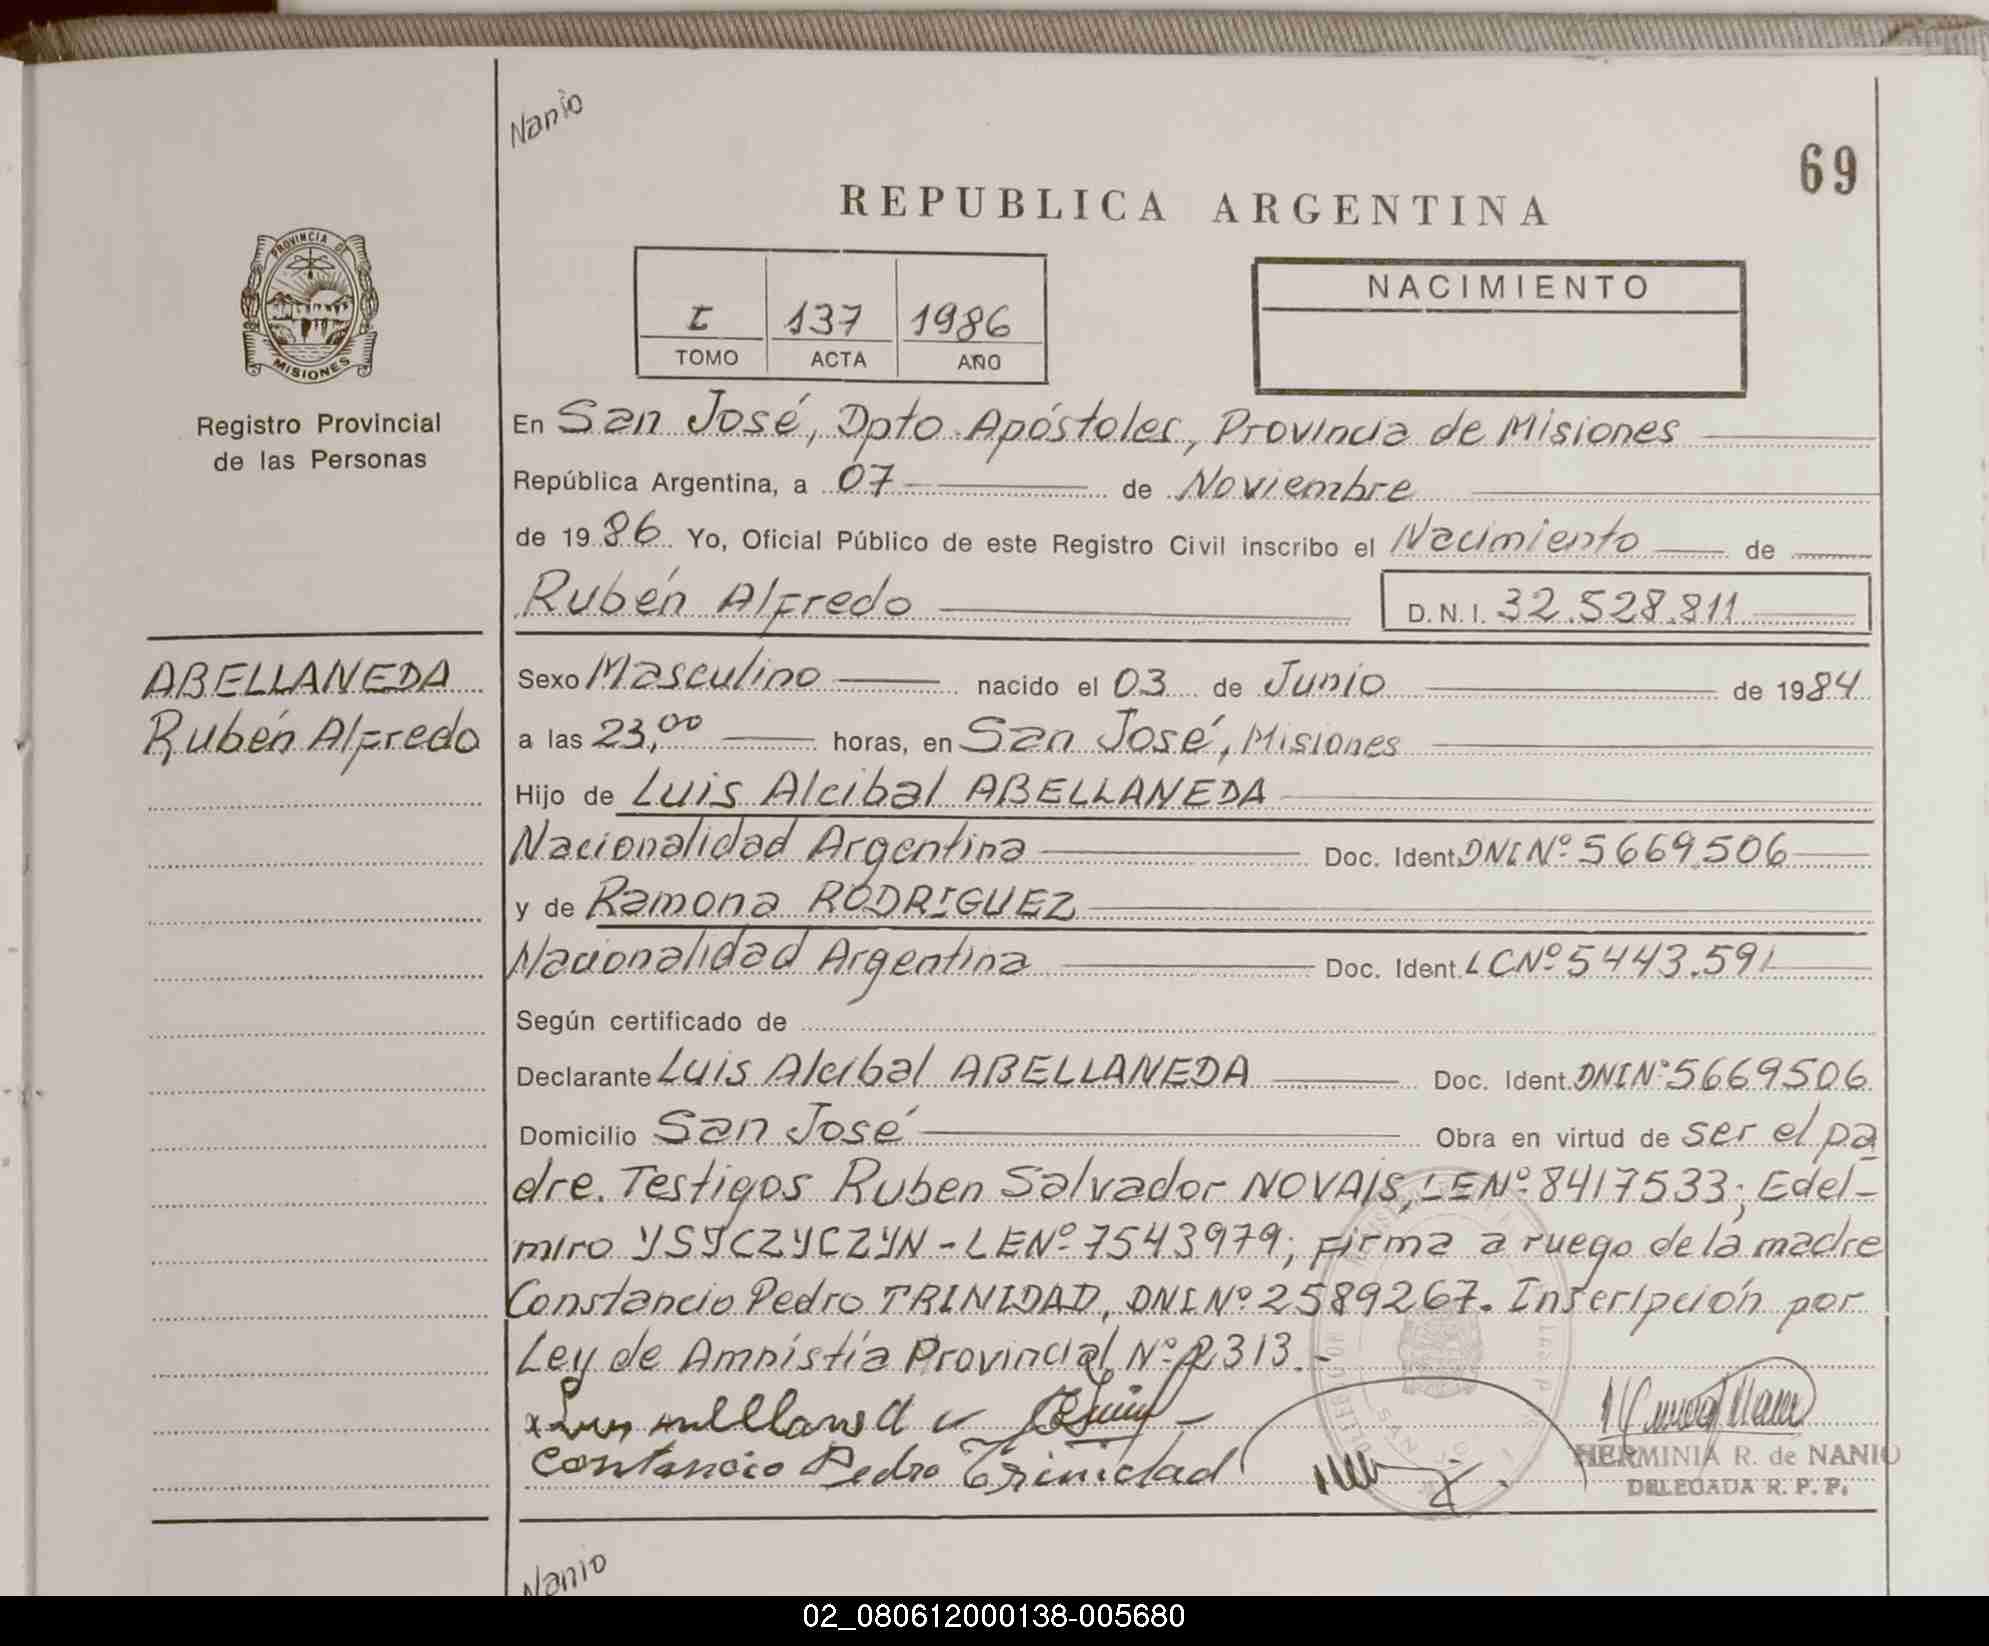 Nanio
69
REPUBLICA ARGENTINA
PROVINCIA DE
MISIONES
Registro Provincial
de las Personas
I 137 1986
TOMO ACTA AÑO
NACIMIENTO
En San José, Dpto Apóstoles, Provincia de Misiones
República Argentina, a 07 de Noviembre
de 1986 Yo, Oficial Público de este Registro Civil inscribo el Nacimiento de
Rubén Alfredo D.N.I. 32.528.811
ABELLANEDA
Rubén Alfredo
Sexo Masculino nacido el 03 de Junio de 1984
a las 23,00 horas, en San José, Misiones
Hijo de Luis Alcibal ABELLANEDA
Nacionalidad Argentina Doc. Ident. DNI Nº 5669.506
y de Ramona RODRIGUEZ
Nacionalidad Argentina Doc. Ident. LC Nº 5443.591
Según certificado de
Declarante Luis Alcibal ABELLANEDA Doc. Ident. DNI Nº 5669506
Domicilio San José Obra en virtud de ser el pa
dre. Testigos Ruben Salvador NOVAIS, LE Nº 8417533; Edel-
miro YSYCZYCZYN - LE Nº 7543979; firma a ruego de la madre
Constancio Pedro TRINIDAD, DNI Nº 2589267. Inscripción por
Ley de Amnistía Provincial Nº 2313.-
Constancio Pedro Trinidad
HERMINIA R. de NANIO
DELEGADA R. P. P.
Nanio
02_080612000138-005680